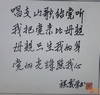 唱支山歌给党听
我把党来比母亲
母亲只生我的身
党的光辉照我心